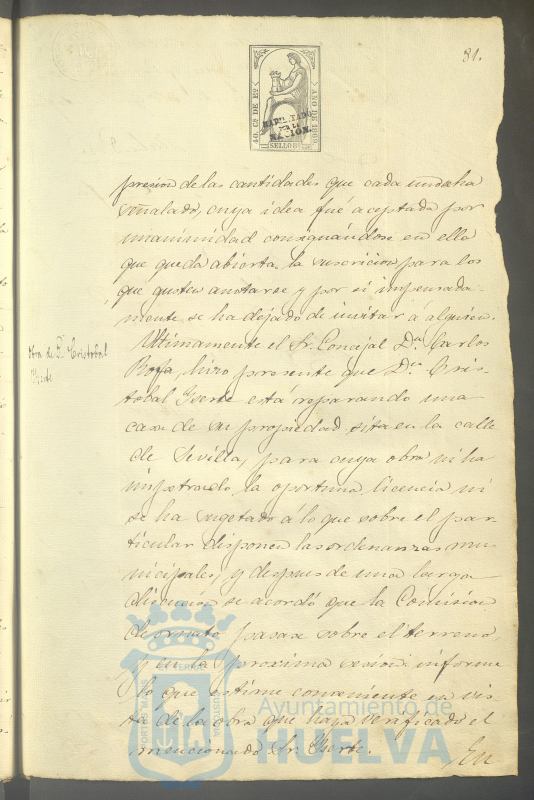 81.
40 Cs DE Eo
AÑO DE 1869
HABILITADO
POR LA
NACION.
SELLO 8o
presion de las cantidades que cada uno ha
señalado, cuya idea fué aceptada por
unanimidad consignándose en ella
que queda abierta la suscricion para los
que gusten anotarse y por si impensada-
mente se ha dejado de invitar a alguien.
Ultimamente el Sr. Concejal Dn. Carlos
hizo presente que Dn. Cris-
tobal Yserte está reparando una
casa de su propiedad, sita en la calle
de Sevilla, para cuya obra ni ha
impetrado la oportuna licencia ni
se ha sugetado á lo que sobre el par-
ticular disponen las ordenanzas mu-
nicipales, y despues de una larga
discucion se acordó que la Comision
de ornato pasase sobre el terreno,
y en la proxima sesion informe
lo que estime conveniente en vis-
ta de la obra que haya verificado el
mencionado Sr. Yserte.
En
Obra de D. Cristobal
Yserte
Ayuntamiento de
HUELVA